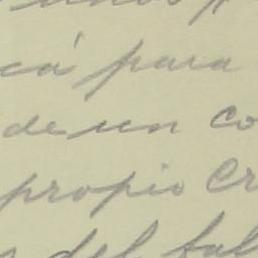 cá para
de un co
propio Cr
del fal